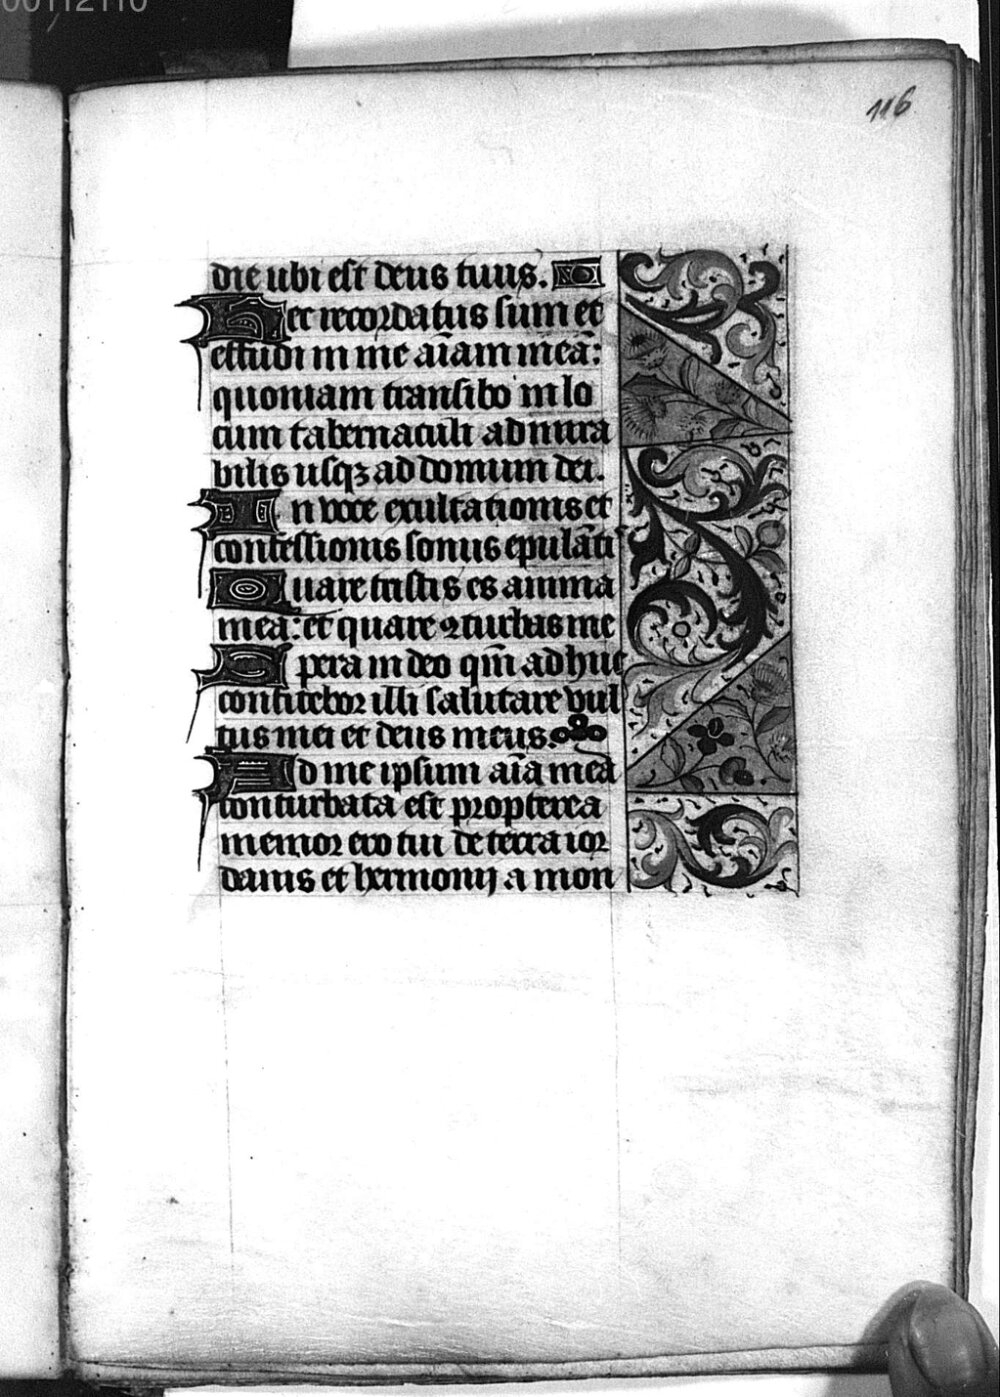 00112110
116
die ubi est deus tuus.
Hec recordatus sum et
effudi in me aīam meā:
quoniam transibo in lo
cum tabernaculi admira
bilis usqꝫ ad domum dei.
In voce exultationis et
confessionis sonus epulātiˢ
Quare tristis es anima
mea: et quare ꝯturbas me
Spera in deo qm̄ adhuc
confitebor illi salutare vul
tus mei et deus meus.
Ad me ipsum aīa mea
conturbata est propterea
memor ero tui de terra ior
danis et hermonij a mon